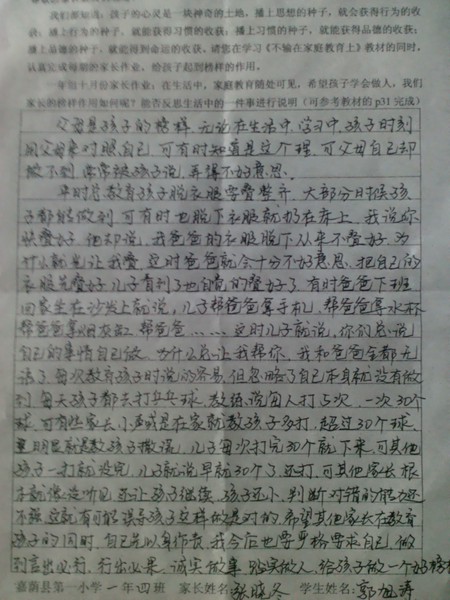 我们都知道：孩子的心灵是一块神奇的土地，播上思想的种子，就会获得行为的收
获；播上行为的种子，就能获得习惯的收获；播上习惯的种子，就能获得品德的收获；
播上品德的种子，就能得到命运的收获。请您在学习《不输在家庭教育上》教材的同时，
认真完成每期的家长作业，给孩子起到榜样的作用。
一年级十月份家长作业：在生活中，家庭教育随处可见，希望孩子学会做人，我们
家长的榜样作用如何呢？能否反思生活中的一件事进行说明（可参考教材的 p31 完成）
父母是孩子的榜样，无论在生活中，学习中，孩子时刻
用父母来对照自己，可有时知道是这个理，可父母自己却
做不到，常常被孩子说，弄得不好意思。
平时总教育孩子脱衣服要叠整齐，大部分时候孩
子都能做到，可有时也脱下衣服就扔在床上，我说你
快叠好，他却说，我爸爸的衣服脱下从来不叠好，为
什么就光让我叠，这时爸爸就会十分不好意思，把自己的
衣服先叠好，儿子看到了也自觉的叠好了，有时爸爸下班
回家坐在沙发上就说，儿子帮爸爸拿手机，帮爸爸拿水杯
帮爸爸拿烟灰缸，帮爸爸……这时儿子就说，你们总说
自己的事情自己做，为什么总让我帮你，我和爸爸全都无
语了，每次教育孩子时说的容易，但忽略了自己本身就没有做
到，每天孩子都去打乒乓球，教练说每人打5次，一次30个
球，可有些家长小声或是在家就教孩子多打，超过30个球，
重明显就是教孩子撒谎，儿子每次打完30个就下来，可其他
孩子一打就没完，儿子就说早就30个了，还打，可其他家长根
子就像没听见，还让孩子继续，孩子还小，判断对错的能力还
不强，这就有可能误导孩子这样做是对的，希望其他家长在教育
孩子的同时，自己先以身作责，我今后也要严格要求自己，做
到言出必行，行出必果，诚实做事，踏实做人，给孩子做一个好榜样
嘉荫县第一小学 一年四班 家长姓名：张晓冬 学生姓名：郭旭涛